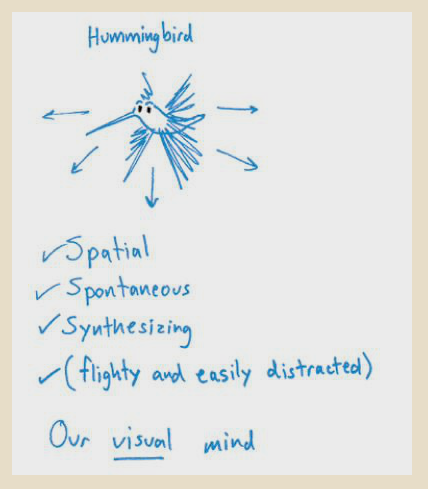 Hummingbird
✓ Spatial
✓ Spontaneous
✓ Synthesizing
✓ (flighty and easily distracted)
Our visual mind